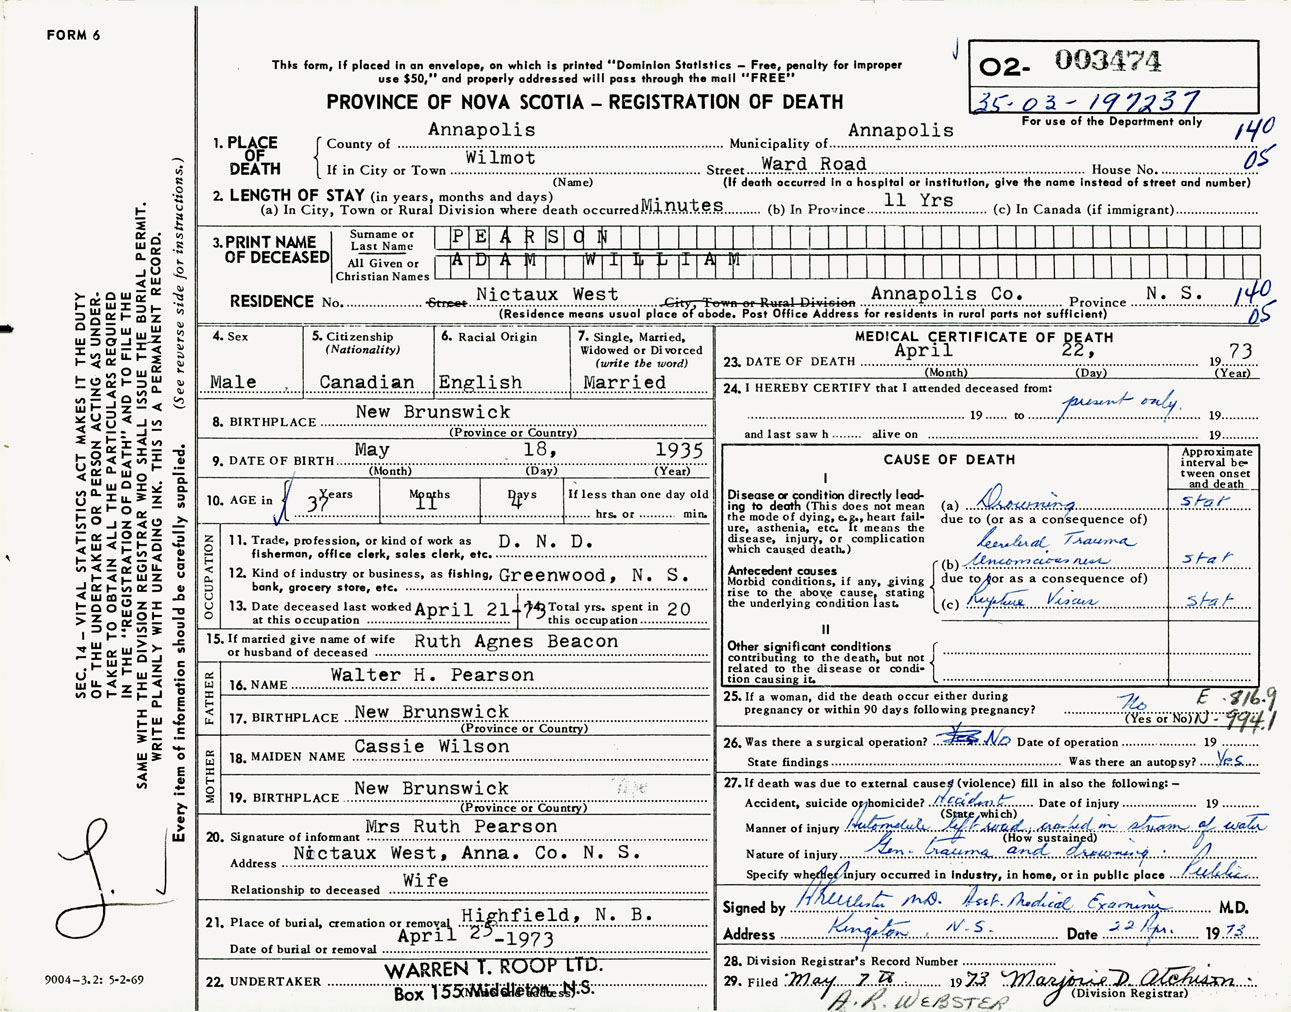 FORM 6
This form, if placed in an envelope, on which is printed "Dominion Statistics — Free, penalty for improper
use $50," and properly addressed will pass through the mail "FREE"
PROVINCE OF NOVA SCOTIA — REGISTRATION OF DEATH
02- 003474
35-03-197237
For use of the Department only
140
05
1. PLACE OF DEATH
County of Annapolis Municipality of Annapolis
If in City or Town Wilmot Street Ward Road House No.
(Name) (If death occurred in a hospital or institution, give the name instead of street and number)
2. LENGTH OF STAY (in years, months and days)
(a) In City, Town or Rural Division where death occurred Minutes (b) In Province 11 Yrs (c) In Canada (if immigrant)
3. PRINT NAME OF DECEASED
Surname or Last Name PEARSON
All Given or Christian Names ADAM WILLIAM
RESIDENCE No. Street Nictaux West City, Town or Rural Division Annapolis Co. Province N. S. 140
(Residence means usual place of abode. Post Office Address for residents in rural parts not sufficient) 05
4. Sex
Male
5. Citizenship
(Nationality)
Canadian
6. Racial Origin
English
7. Single, Married,
Widowed or Divorced
(write the word)
Married
8. BIRTHPLACE New Brunswick
(Province or Country)
9. DATE OF BIRTH May 18, 1935
(Month) (Day) (Year)
10. AGE in Years 37 Months 11 Days 4 If less than one day old
hrs. or min.
OCCUPATION
11. Trade, profession, or kind of work as D. N. D.
fisherman, office clerk, sales clerk, etc.
12. Kind of industry or business, as fishing, Greenwood, N. S.
bank, grocery store, etc.
13. Date deceased last worked April 21-73 14. Total yrs. spent in 20
at this occupation this occupation
15. If married give name of wife Ruth Agnes Beacon
or husband of deceased
FATHER
16. NAME Walter H. Pearson
17. BIRTHPLACE New Brunswick
(Province or Country)
MOTHER
18. MAIDEN NAME Cassie Wilson
19. BIRTHPLACE New Brunswick
(Province or Country)
20. Signature of informant Mrs Ruth Pearson
Address Nictaux West, Anna. Co. N. S.
Relationship to deceased Wife
21. Place of burial, cremation or removal Highfield, N. B.
Date of burial or removal April 25-1973
22. UNDERTAKER WARREN T. ROOP LTD.
Box 155 Middleton, N.S.
(Name and address)
MEDICAL CERTIFICATE OF DEATH
23. DATE OF DEATH April 22, 19 73
(Month) (Day) (Year)
24. I HEREBY CERTIFY that I attended deceased from:
19 to present only. 19
and last saw h alive on 19
CAUSE OF DEATH
Approximate interval between onset and death
I
Disease or condition directly leading to death (This does not mean the mode of dying, e.g., heart failure, asthenia, etc. It means the disease, injury, or complication which caused death.)
(a) Drowning stat
due to (or as a consequence of)
Cerebral Trauma
Antecedent causes
Morbid conditions, if any, giving rise to the above cause, stating the underlying condition last.
(b) Unconsciousness stat
due to (or as a consequence of)
(c) Rupture Viscus stat
II
Other significant conditions
contributing to the death, but not related to the disease or condition causing it.
25. If a woman, did the death occur either during
pregnancy or within 90 days following pregnancy? No
(Yes or No)
E-816.9
N-994.1
26. Was there a surgical operation? Yes No Date of operation 19
State findings Was there an autopsy? Yes
27. If death was due to external causes (violence) fill in also the following: —
Accident, suicide or homicide? Accident Date of injury 19
(State which)
Manner of injury Automobile left road, crashed in stream of water
(How sustained)
Nature of injury Gen. trauma and drowning.
Specify whether injury occurred in industry, in home, or in public place Public
Signed by M.D. Asst. Medical Examiner M.D.
Address Kingston, N.S. Date 22 Apr. 19 73
28. Division Registrar's Record Number
29. Filed May 7th 1973 Marjorie D. Atchison
(Division Registrar)
A. R. WEBSTER
SEC. 14 — VITAL STATISTICS ACT MAKES IT THE DUTY
OF THE UNDERTAKER OR PERSON ACTING AS UNDER-
TAKER TO OBTAIN ALL THE PARTICULARS REQUIRED
IN THE "REGISTRATION OF DEATH" AND TO FILE THE
SAME WITH THE DIVISION REGISTRAR WHO SHALL ISSUE THE BURIAL PERMIT.
WRITE PLAINLY WITH UNFADING INK. THIS IS A PERMANENT RECORD.
Every item of information should be carefully supplied. (See reverse side for instructions.)
9004—3.2: 5-2-69